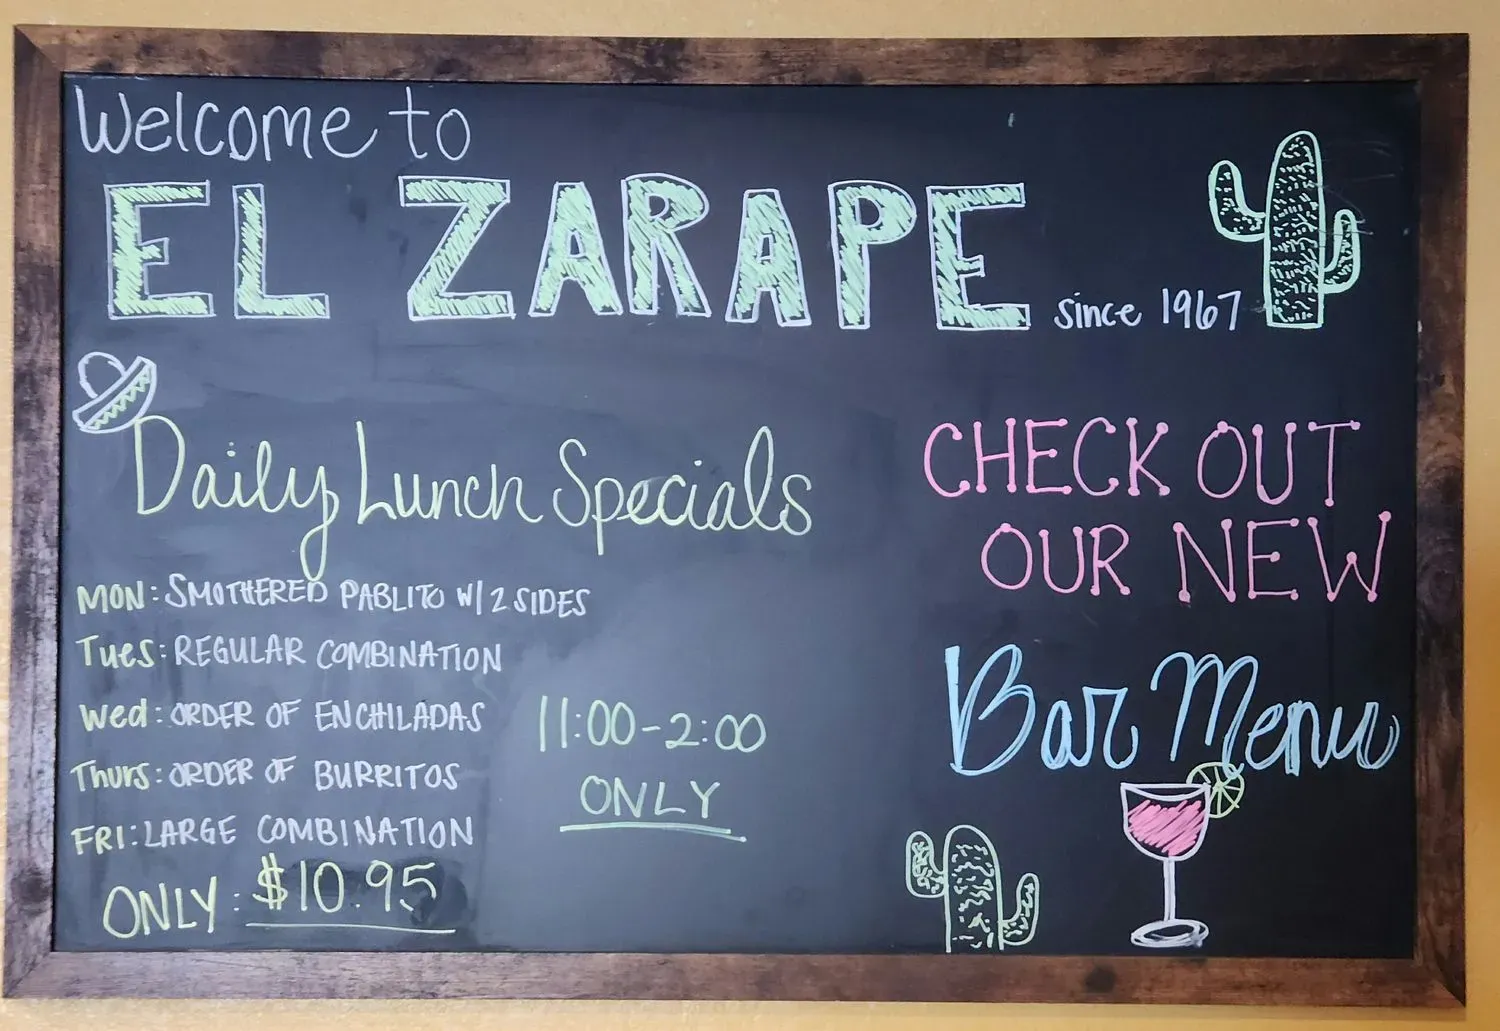 Welcome to
EL ZARAPE
since 1967
Daily Lunch Specials
MON: SMOTHERED PABLITO W/ 2 SIDES
Tues: REGULAR COMBINATION
Wed: ORDER OF ENCHILADAS
Thurs: ORDER OF BURRITOS
FRI: LARGE COMBINATION
ONLY: $10.95
11:00-2:00
ONLY
CHECK OUT
OUR NEW
Bar Menu